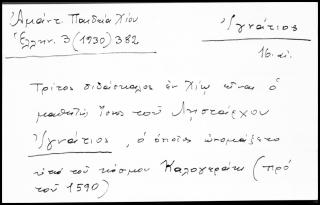 Ἀμάντ. Παιδεία Χίου
Ἑλλην. 3 (1930) 382
Ἰγνάτιος
16. αἰ.
Τρίτος διδάσκαλος ἐν Χίῳ εἶναι ὁ
μαθητής ἴσως τοῦ Ληστάρχου
Ἰγνάτιος, ὁ ὁποῖος ὠνομάζετο
ὑπό τοῦ κόσμου Καλογεράκι (πρό
τοῦ 1590)